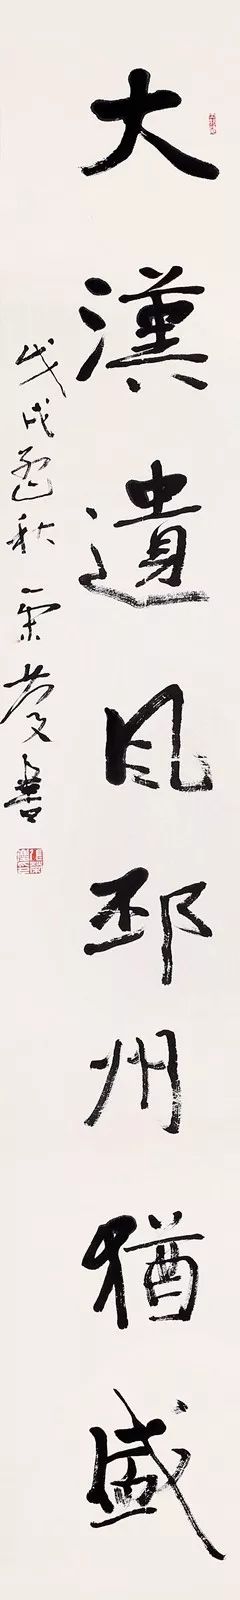 大漢遺風邳州猶盛
戊戌孟秋景慶書